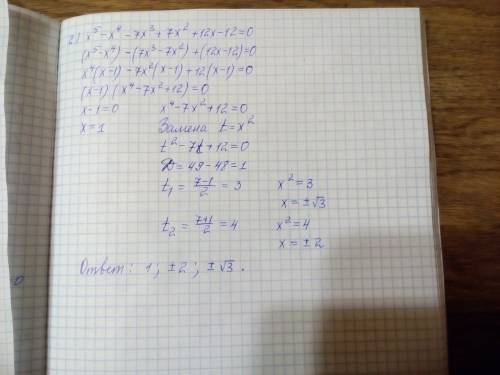 2) x⁵ - x⁴ - 7x³ + 7x² + 12x - 12 = 0
(x⁵ - x⁴) - (7x³ - 7x²) + (12x - 12) = 0
x⁴(x - 1) - 7x²(x - 1) + 12(x - 1) = 0
(x - 1)(x⁴ - 7x² + 12) = 0
x - 1 = 0 x⁴ - 7x² + 12 = 0
x = 1 Замена t = x²
t² - 7t + 12 = 0
D = 49 - 48 = 1
t₁ = (7-1)/2 = 3 x² = 3
x = ±√3
t₂ = (7+1)/2 = 4 x² = 4
x = ±2
Ответ: 1; ±2; ±√3.